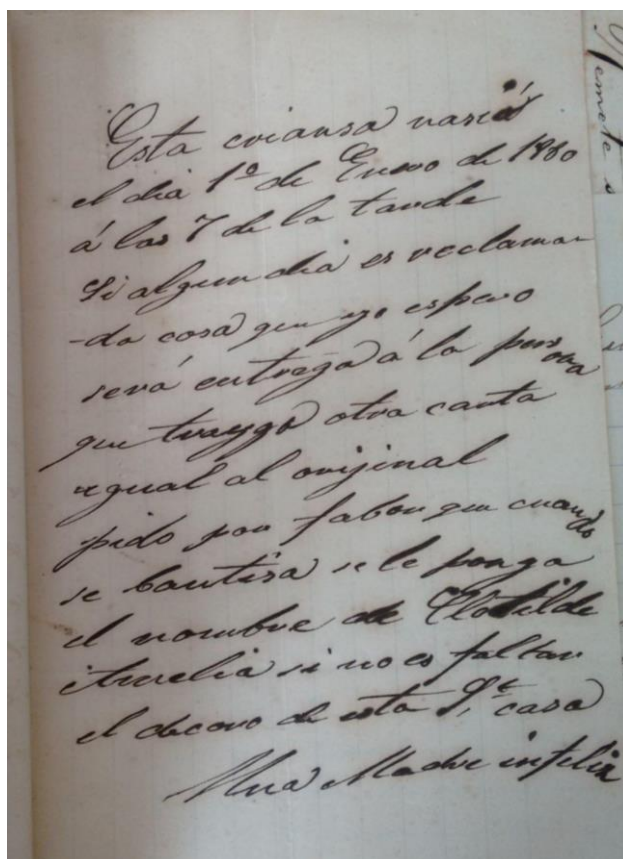 Esta criansa nasió
el dia 1º de Enero de 1880
á las 7 de la tarde
Si algun dia es reclama
-da cosa que yo espero
será entrega á la persona
que traygo otra carta
ygual al orijinal
pido por fabor que cuando
se bautisa se le ponga
el nombre de Clotilde
Amelia si no es faltar
el decoro de esta Sª casa
Una Madre infelix
Remete s